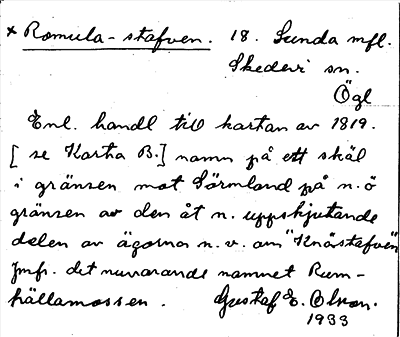 × Romula-stafven. 18. Sunda mfl.
Skedevi sn.
Ögl
Enl. handl till kartan av 1819.
[se Karta B.] namn på ett skäl
i gränsen mot Sörmland på n.ö
gränsen av den åt n. uppskjutande
delen av ägorna n.v. om "Knärstafven"
Jmf. det nuvarande namnet Rum-
hällamossen. Gustaf E. Olson.
1933